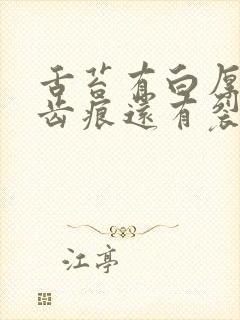 舌苔有白厚
齿痕还有裂
江亭